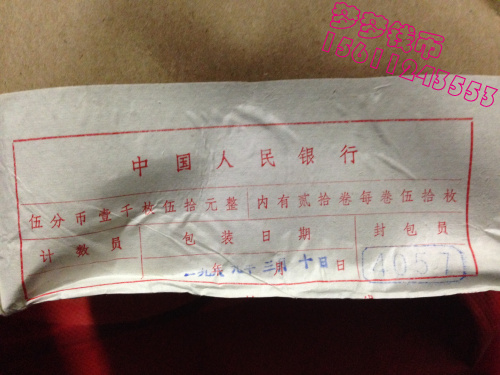 梦梦钱币
15611243553
中国人民银行
伍分币壹千枚伍拾元整 内有贰拾卷每卷伍拾枚
计数员 包装日期 封包员
年 月 十日 日 4057